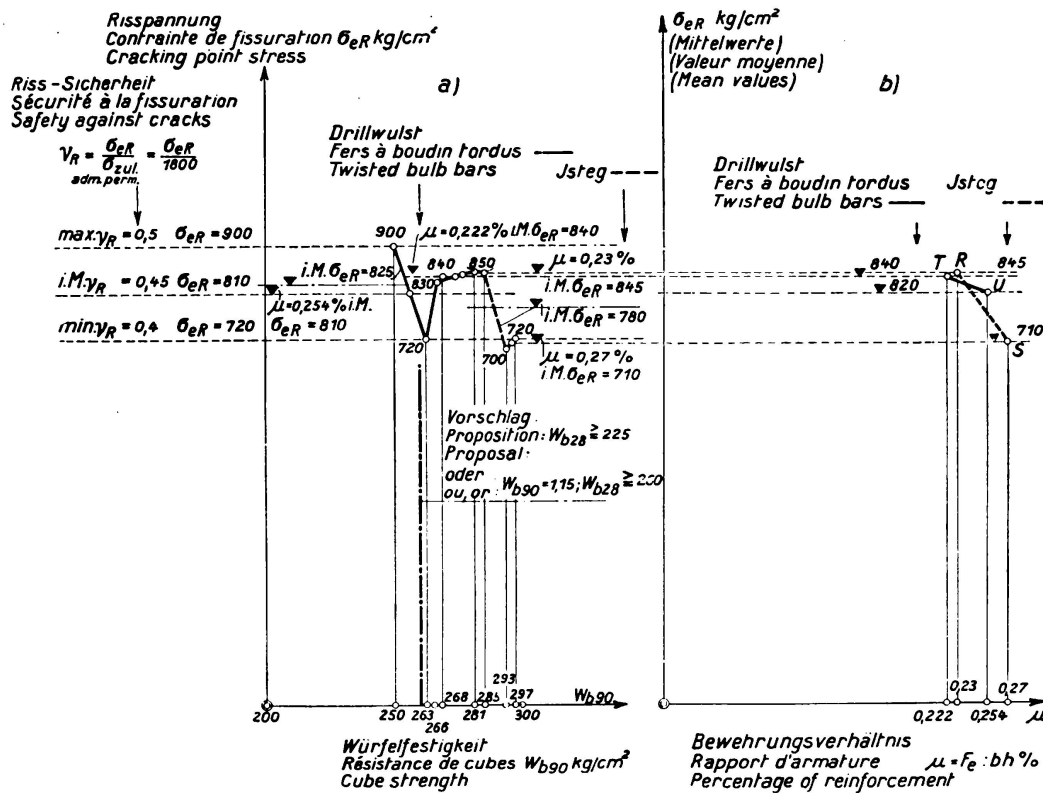 Risspannung
Contrainte de fissuration σeR kg/cm²
Cracking point stress
a)
Riss-Sicherheit
Sécurité à la fissuration
Safety against cracks
νR = σeR / σzul. = σeR / 1800
adm. perm.
Drillwulst
Fers à boudin tordus
Twisted bulb bars
Jsteg
max. γR = 0,5 σeR = 900
900
μ = 0,222% i.M. σeR = 840
i.M. σeR = 825
840
850
μ = 0,23 %
i.M. γR = 0,45 σeR = 810
830
i.M. σeR = 845
μ = 0,254% i.M.
σeR = 810
i.M. σeR = 780
min. γR = 0,4 σeR = 720
720
700
720
μ = 0,27 %
i.M. σeR = 710
Vorschlag
Proposition: Wb28 ≧ 225
Proposal:
oder
ou, or: Wb90 = 1,15; Wb28 ≧
293
268
285
297
Wb90
200
250
263
281
300
266
Würfelfestigkeit
Résistance de cubes Wb90 kg/cm²
Cube strength
σeR kg/cm²
(Mittelwerte)
(Valeur moyenne)
(Mean values)
b)
Drillwulst
Fers à boudin tordus
Twisted bulb bars
Jsteg
840
T R
845
820
U
710
S
0,23
0,27
0,222
0,254
μ
Bewehrungsverhältnis
Rapport d'armature μ = Fe : bh %
Percentage of reinforcement